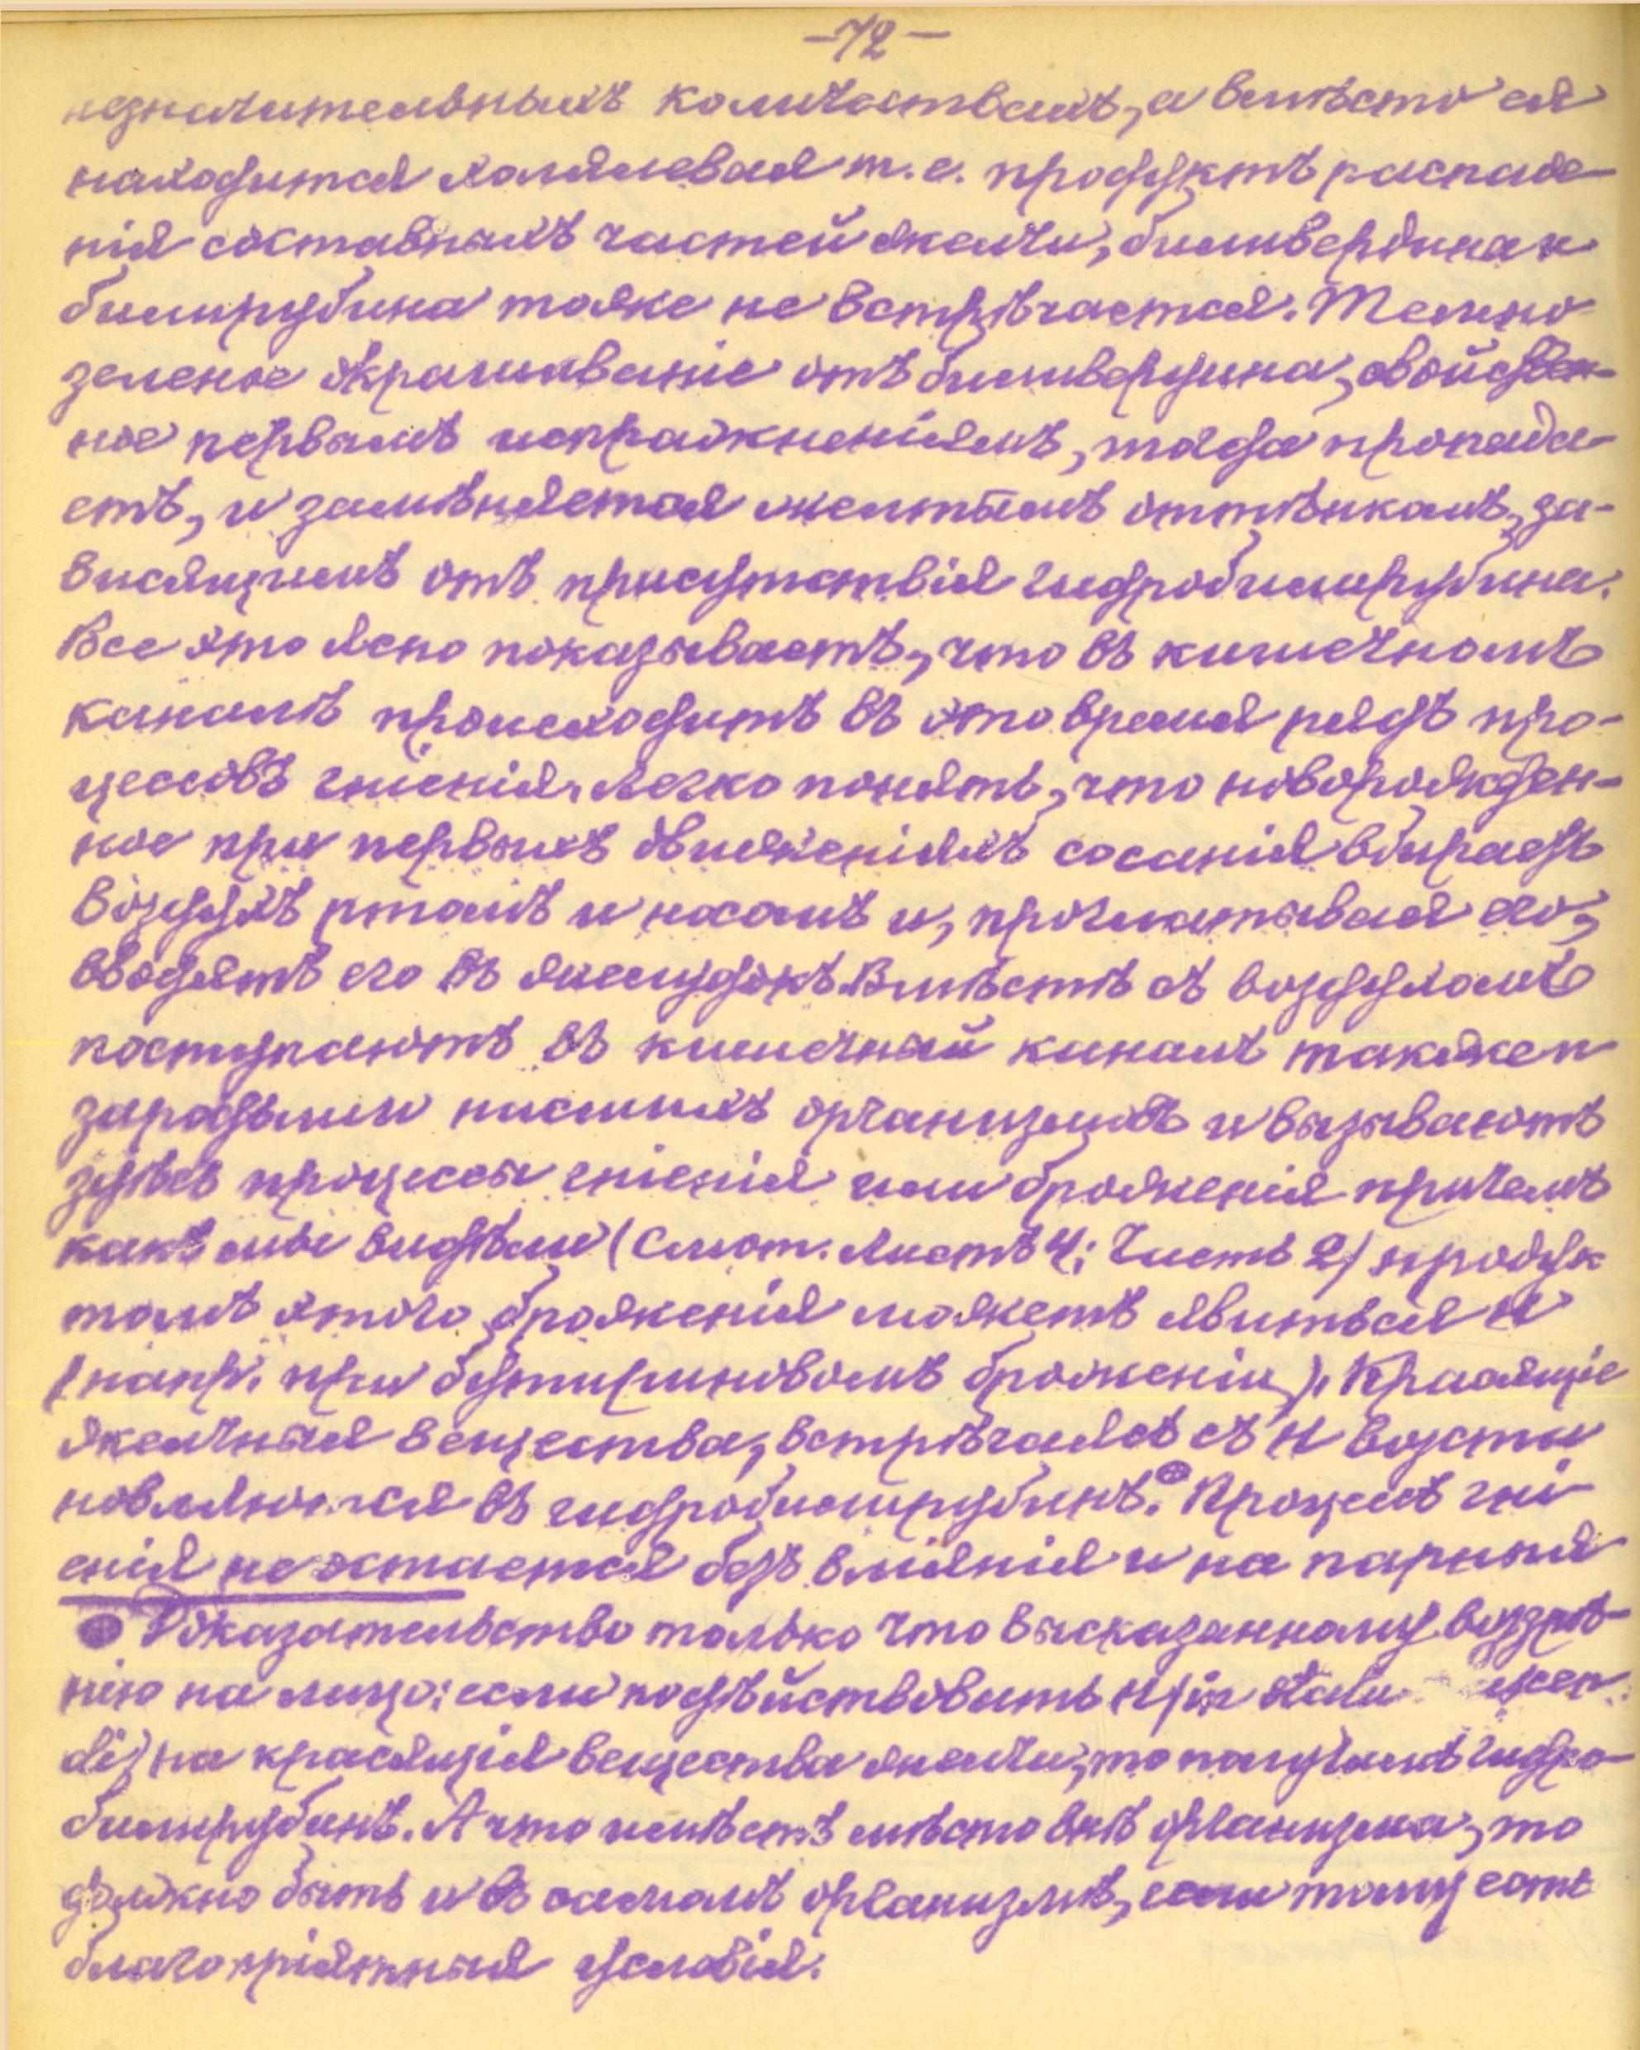 —72—
незначительныхъ количествахъ, а вмѣсто ея
находится холялевая т. е. продуктъ распаде-
нія составныхъ частей желчи, биливердина и
билирубина тоже не встрѣчается. Темно
зеленое окрашиваніе отъ биливердина, свойствен-
ное первымъ испражненіямъ, тогда пропада-
етъ, и замѣняется желтымъ оттѣнкомъ, за-
висящимъ отъ присутствія гидробилирубина.
Все это ясно показываетъ, что въ кишечномъ
каналѣ происходитъ въ это время рядъ про-
цессовъ гніенія. Легко понять, что новорожден-
ное при первыхъ движеніяхъ сосанія вбираетъ
воздухъ ртомъ и носомъ и, проглатывая его,
вводятъ его въ желудокъ. Вмѣстѣ съ воздухомъ
поступаютъ въ кишечный каналъ также и
зародыши низшихъ организмовъ и вызываютъ
здѣсь процессы гніенія или броженія причемъ
какъ мы видѣли (Смот. Листъ 4; Часть 2) продук
томъ этого броженія можетъ явиться H
(напр. при бутириновомъ броженіи). Красящіе
желчныя вещества, встрѣчаясь съ H возста
новляются въ гидробилирубинъ.⊕ Процессъ гні
енія не остается безъ вліянія и на парныя
⊕ Доказательство только что высказанному воззрѣ-
нію на лицо: если подѣйствовать H (in statu nascen
di) на красящія вещества желчи, то получимъ гидро-
билирубинъ. А что имѣетъ мѣсто внѣ организма, то
должно быть и въ самомъ организмѣ, если тому есть
благопріятныя условія.